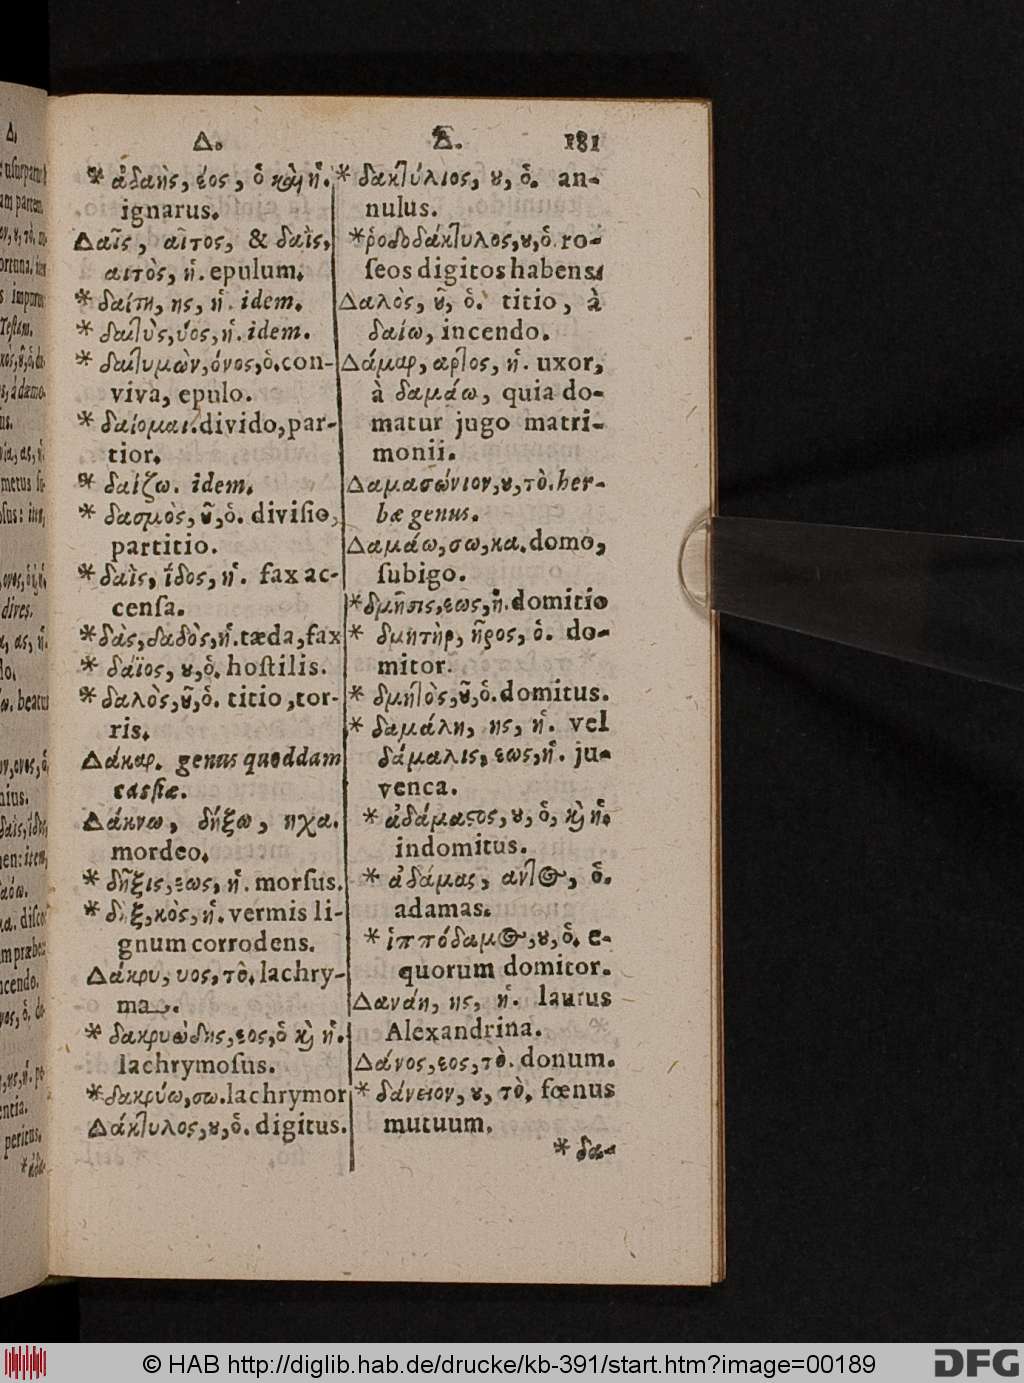 Δ.
* ἀδαὴς, έος, ὁ καὶ ἡ.
ignarus.
Δαῒς, αῒτος, & δαῒς,
αιτὸς, ἡ. epulum.
* δαίτη, ης, ἡ. idem.
* δαιτὺς, ύος, ἡ. idem.
* δαιτυμὼν, όνος, ὁ. con-
viva, epulo.
* δαίομαι. divido, par-
tior.
* δαίζω. idem.
* δασμὸς, ȣ͂, ὁ. diviſio,
partitio.
* δαῒς, ΐδος, ἡ. fax ac-
cenſa.
* δὰς, δαδὸς, ἡ. tæda, fax
* δάϊος, ȣ, ὁ. hoſtilis.
* δαλὸς, ȣ͂, ὁ. titio, tor-
ris.
Δάκαρ. genus quoddam
caſſiæ.
Δάκνω, δήξω, ηχα.
mordeo.
* δῆξις, εως, ἡ. morſus.
* δὴξ, κὸς, ἡ. vermis li-
gnum corrodens.
Δάκρυ, υος, τὸ. lachry-
ma.
* δακρυώδης, εος, ὁ ϗ ἡ.
lachrymoſus.
* δακρύω, σω. lachrymor
Δάκτυλος, ȣ, ὁ. digitus.
Δ. 181
* δακτύλιος, ȣ, ὁ. an-
nulus.
* ῥοδοδάκτυλος, ȣ, ὁ. ro-
ſeos digitos habens.
Δαλὸς, ȣ͂, ὁ. titio, à
δαίω, incendo.
Δάμαρ, αρτος, ἡ. uxor,
à δαμάω, quia do-
matur jugo matri-
monii.
Δαμασώνιον, ȣ, τὸ. her-
bæ genus.
Δαμάω, σω, κα. domo,
ſubigo.
* δμῆσις, εως, ἡ. domitio
* δμητὴρ, ῆρος, ὁ. do-
mitor.
* δμητὸς, ȣ͂, ὁ. domitus.
* δαμάλη, ης, ἡ. vel
δάμαλις, εως, ἡ. ju-
venca.
* ἀδάμαςος, ȣ, ὁ, ϗ ἡ.
indomitus.
* ἀδάμας, αντος, ὁ.
adamas.
* ἱππόδαμος, ȣ, ὁ. e-
quorum domitor.
Δανάη, ης, ἡ. laurus
Alexandrina.
Δάνος, εος, τὸ. donum.
* δάνειον, ȣ, τὸ. fœnus
mutuum.
* δα-
© HAB http://diglib.hab.de/drucke/kb-391/start.htm?image=00189
DFG